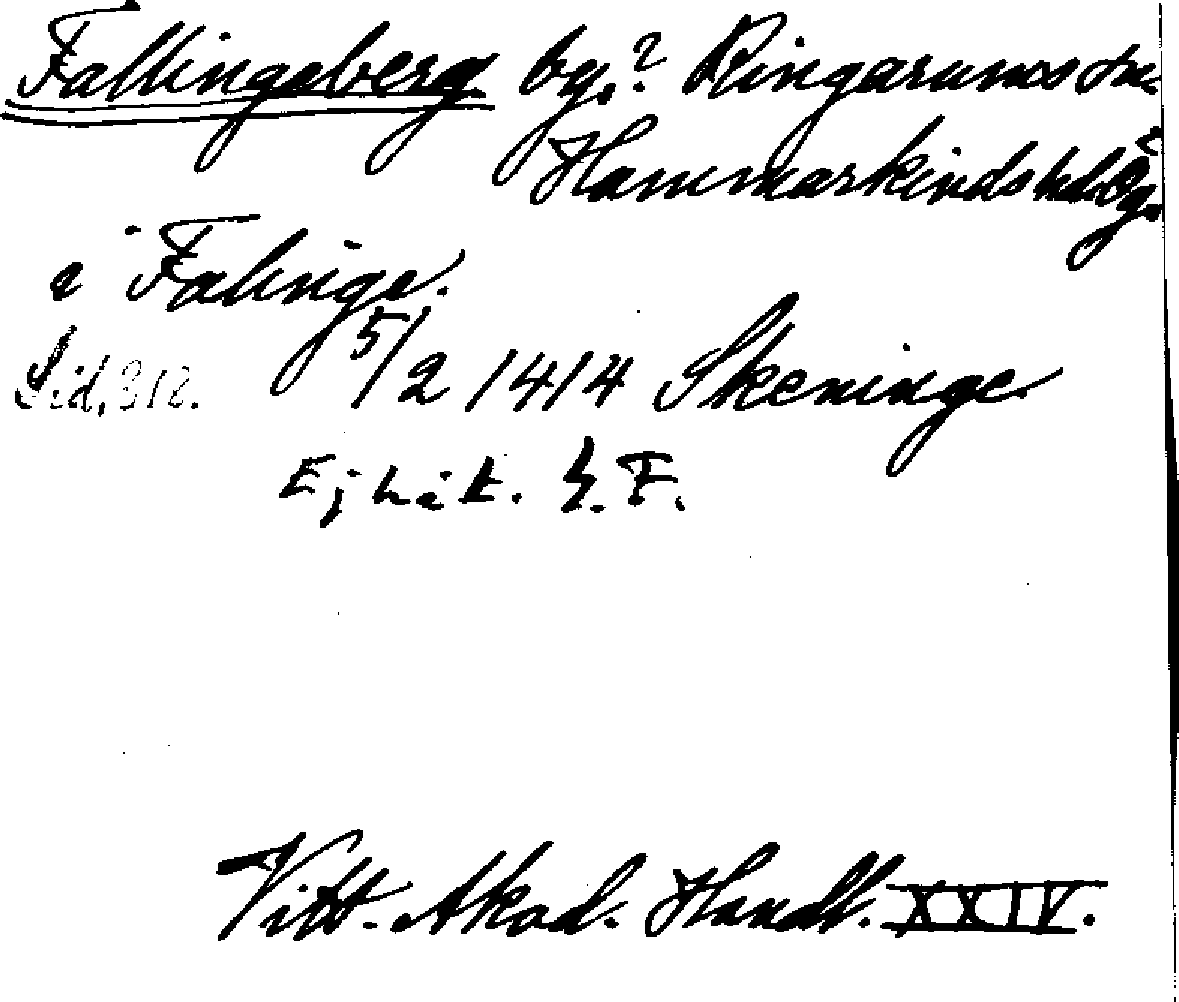 Fallingeberg by.? Ringarums sn.
Hammarkinds hd. Ög.
i Falinge.
Sid. 312. 5/2 1414 Skeninge
Ej håk. G.F.
Vitt. Akad. Handl. XXIV.